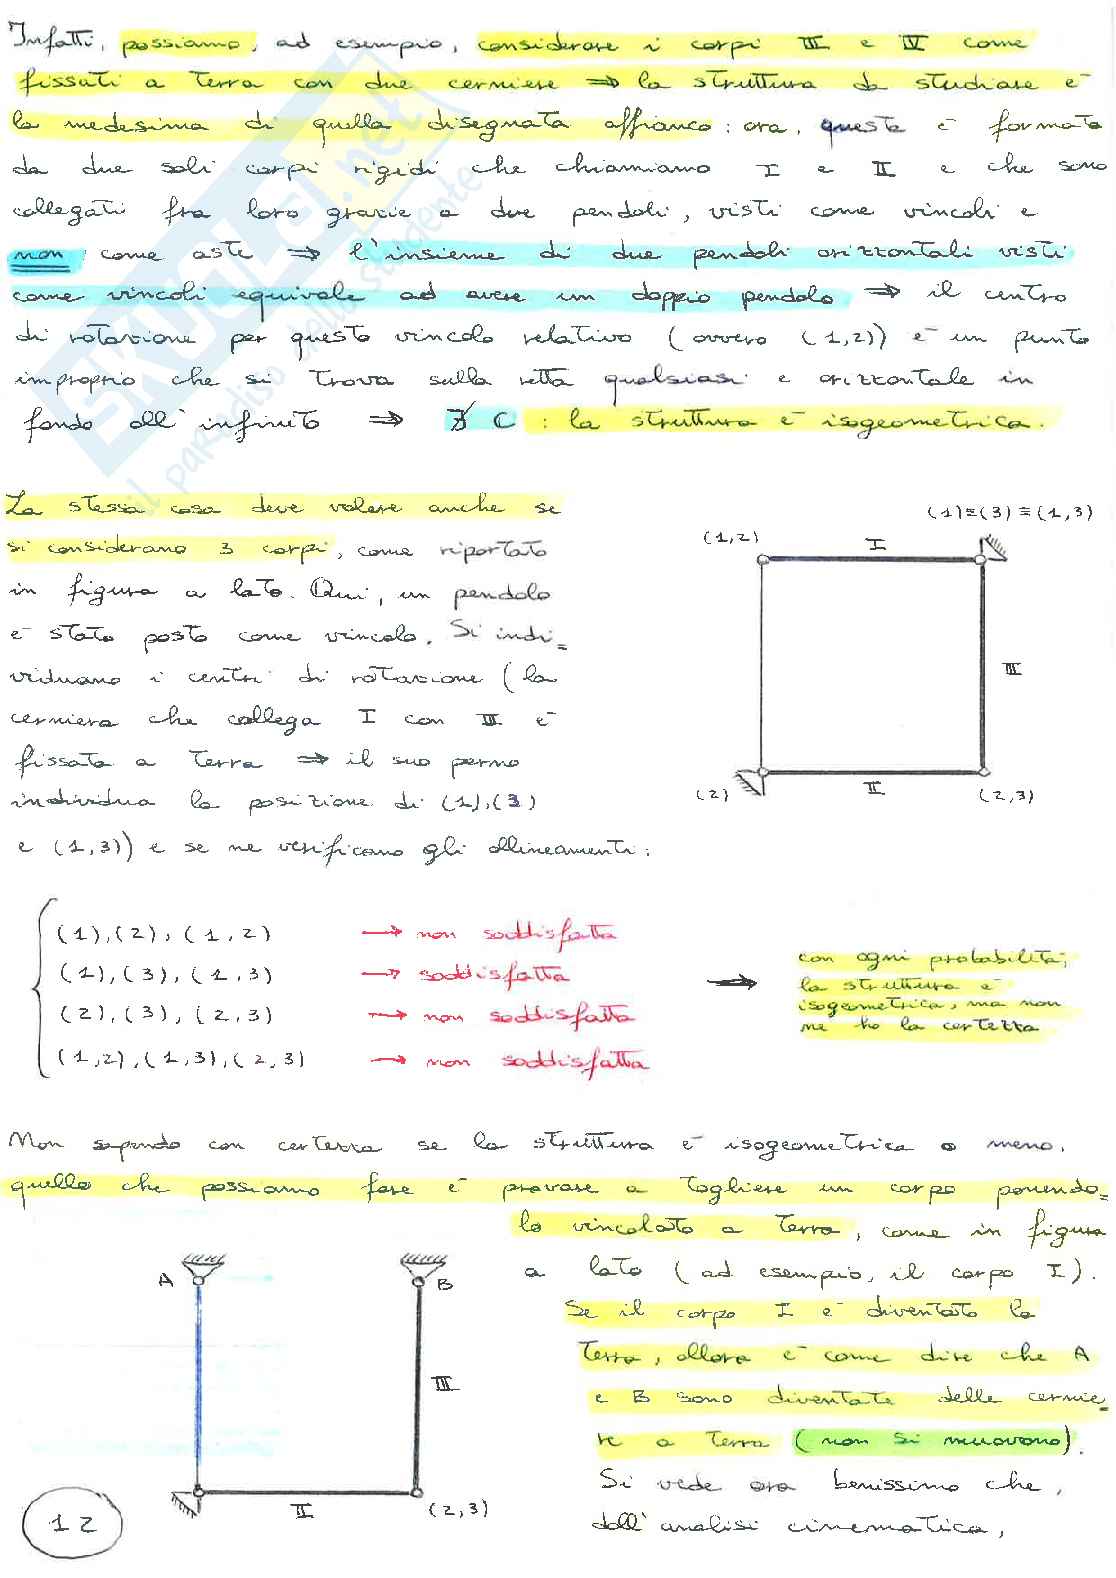 Infatti, possiamo, ad esempio, considerare i corpi III e IV come
fissati a terra con due cerniere ⇒ la struttura da studiare è
la medesima di quella disegnata affianco: ora, questa è formata
da due soli corpi rigidi che chiamiamo I e II e che sono
collegati fra loro grazie a due pendoli, visti come vincoli e
non come aste ⇒ l'insieme di due pendoli orizzontali visti
come vincoli equivale ad avere un doppio pendolo ⇒ il centro
di rotazione per questo vincolo relativo (ovvero (1,2)) è un punto
improprio che si trova sulla retta qualsiasi e orizzontale in
fondo all'infinito ⇒ ∄ C : la struttura è isogeometrica.
La stessa cosa deve valere anche se
si considerano 3 corpi, come riportato
in figura a lato. Qui, un pendolo
è stato posto come vincolo. Si indi=
viduano i centri di rotazione (la
cerniera che collega I con III è
fissata a terra ⇒ il suo perno
individua la posizione di (1),(3)
e (1,3)) e se ne verificano gli allineamenti:
(1)≡(3)≡(1,3)
(1,2)
I
III
(2)
II
(2,3)
(1),(2),(1,2) → non soddisfatta
(1),(3),(1,3) → soddisfatta
(2),(3),(2,3) → non soddisfatta
(1,2),(1,3),(2,3) → non soddisfatta
→ con ogni probabilità,
la struttura è
isogeometrica, ma non
ne ho la certezza
Non sapendo con certezza se la struttura è isogeometrica o meno,
quello che possiamo fare è provare a togliere un corpo ponendo=
lo vincolato a terra, come in figura
a lato (ad esempio, il corpo I).
Se il corpo I è diventato la
terra, allora è come dire che A
e B sono diventate delle cernie=
re a terra (non si muovono).
Si vede ora benissimo che,
dall'analisi cinematica,
A
B
III
II
(2,3)
12
SKUOLA.net
il paradiso dello studente